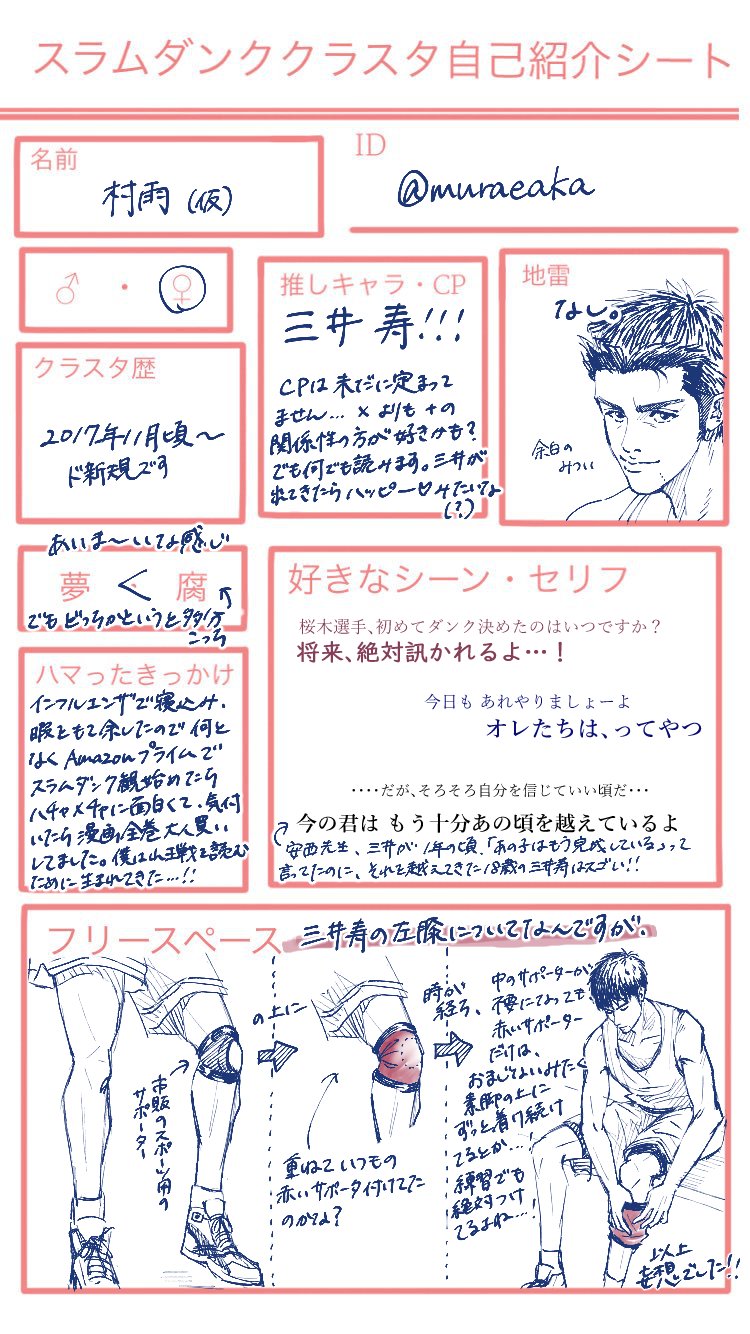 スラムダンククラスタ自己紹介シート
名前
村雨(仮)
ID
@muraeaka
♂・♀
推しキャラ・CP
三井 寿!!!
CPは未だに定まって
ません… × よりも + の
関係性の方が好きかも?
でも何でも読みます。三井が
出てきたらハッピー♡みたいな
(?)
地雷
なし。
余白の
みつい
クラスタ歴
2017年11月頃〜
ド新規です
あいま〜いな感じ
夢 < 腐
でもどっちかというと多分
こっち
ハマったきっかけ
インフルエンザで寝込み、
暇をもて余したので何と
なくAmazonプライムで
スラムダンク観始めたら
ハチャメチャに面白くて、気付
いたら漫画全巻大人買い
してました。僕は山王戦を読む
ために生まれてきた…!!
好きなシーン・セリフ
桜木選手、初めてダンク決めたのはいつですか?
将来、絶対訊かれるよ…!
今日も あれやりましょーよ
オレたちは、ってやつ
‥‥だが、そろそろ自分を信じていい頃だ‥・
今の君は もう十分あの頃を越えているよ
安西先生、三井が1年の頃、「あの子はもう完成している」って
言ってたのに、それを越えてきた18歳の三井寿はスゴい!!
フリースペース
三井寿の左膝についてなんですが。
市販のスポーツ用の
サポーター
の上に
重ねていつもの
赤いサポータ付けてた
のかな?
時が
経ち、
中のサポーターが
不要になっても
赤いサポーター
だけは、
おまじないみたく
素脚の上に
ずっと着け続け
てるとか…
練習でも
絶対つけ
てるよね…!
以上
妄想でした!!